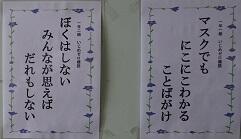 マスクでも
にこにこわかる
ことばがけ
ぼくはしない
みんなが思えば
だれもしない